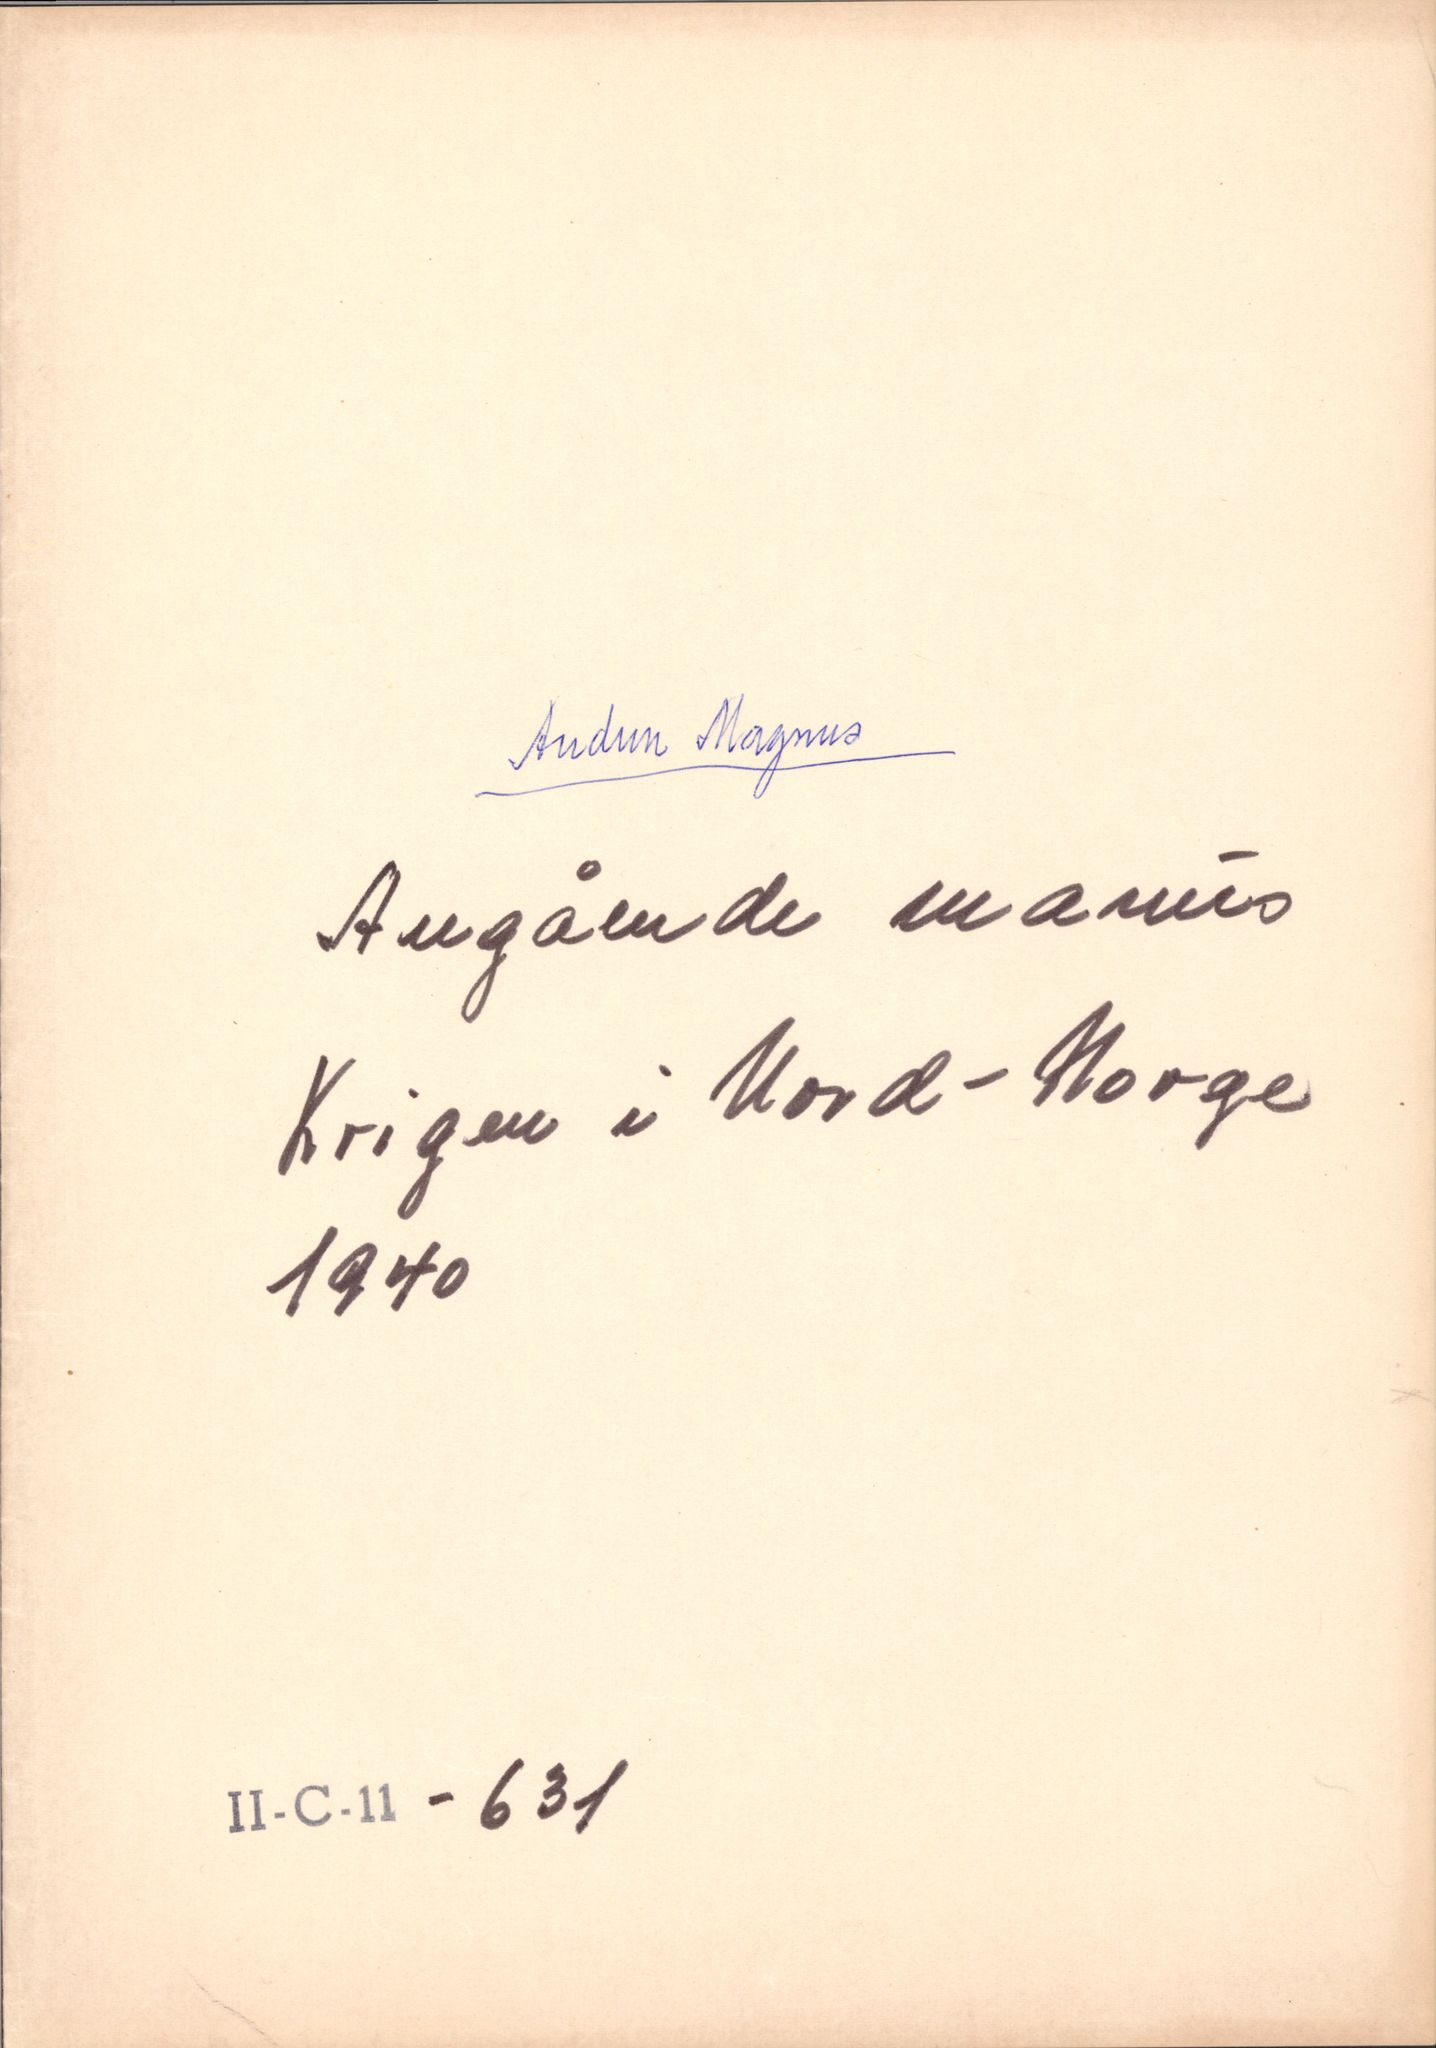 Audun Magnus
Angående manus
Krigen i Nord-Norge
1940
II-C-11 - 631